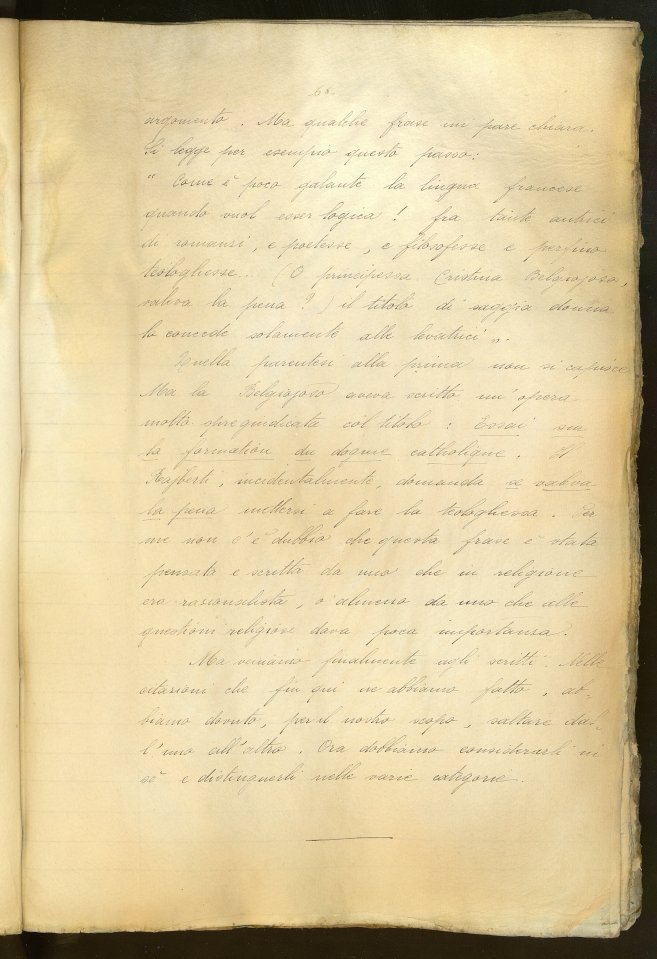 argomento. Ma qualche frase mi pare chiara.
Si legge per esempio questo passo:
" Come è poco galante la lingua francese
quando vuol esser logica! fra tante autrici
di romanzi, e poetesse, e filosofesse e perfino
teologhesse.. (O principessa Cristina Belgiojoso,
valeva la pena?) il titolo di saggia donna
lo concede solamente alle levatrici „.
Quella parentesi alla prima non si capisce.
Ma la Belgiojoso aveva scritto un'opera
molto spregiudicata col titolo: Essai sur
la formation du dogme catholique. Il
Rajberti, incidentalmente, domanda se valeva
la pena mettersi a fare la teologhessa. Per
me non c'è dubbio che questa frase è stata
pensata e scritta da uno che in religione
era razionalista, o almeno da uno che alle
questioni religiose dava poca importanza.
Ma veniamo finalmente agli scritti. Nelle
citazioni che fin qui ne abbiamo fatto, ab-
biamo dovuto, per il nostro scopo, saltare dal-
l'uno all'altro. Ora dobbiamo considerarli in
sè e distinguerli nelle varie categorie.